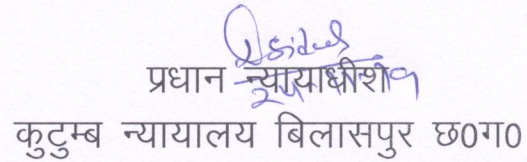 प्रधान न्यायाधीश
कुटुम्ब न्यायालय बिलासपुर छ0ग0